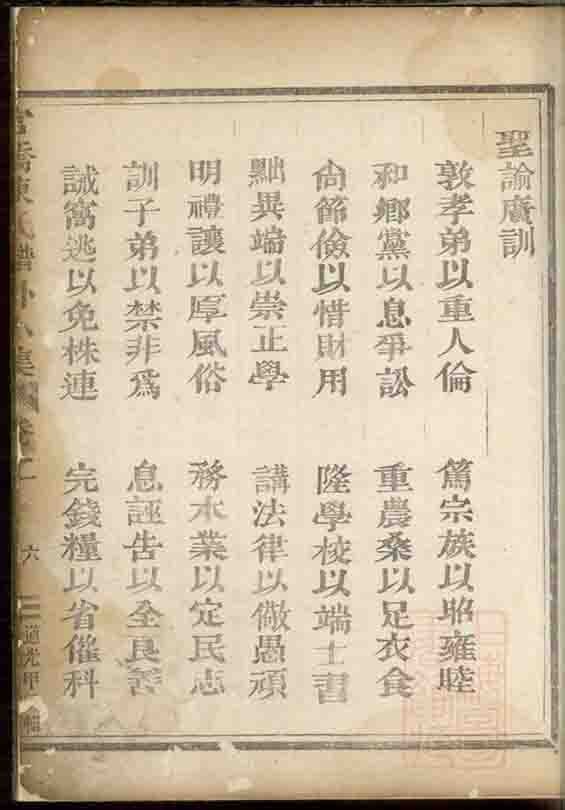 聖諭廣訓
敦孝弟以重人倫 篤宗族以昭雍睦
和鄉黨以息爭訟 重農桑以足衣食
尙節儉以惜財用 隆學校以端士書
黜異端以崇正學 講法律以儆愚頑
明禮讓以厚風俗 務本業以定民志
訓子弟以禁非為 息誣告以全良善
誡窩逃以免株連 完錢糧以省催科
陳氏譜 六 道光甲 輯